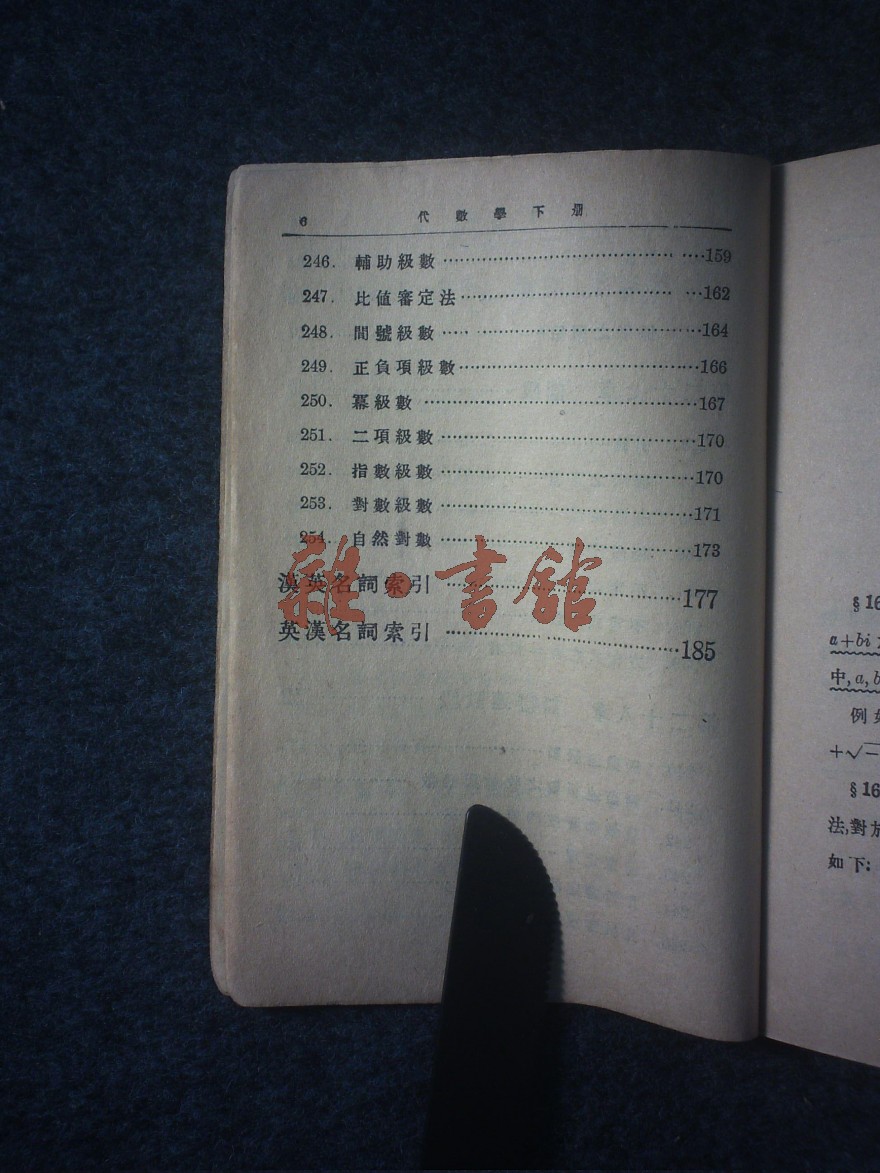 6 代數學下册
246. 輔助級數 159
247. 比值審定法 162
248. 間號級數 164
249. 正負項級數 166
250. 冪級數 167
251. 二項級數 170
252. 指數級數 170
253. 對數級數 171
254. 自然對數 173
漢英名詞索引 177
英漢名詞索引 185
雜·書館
§16
a+bi
中,a,b
例如
+√−
§16
法,對於
如下: